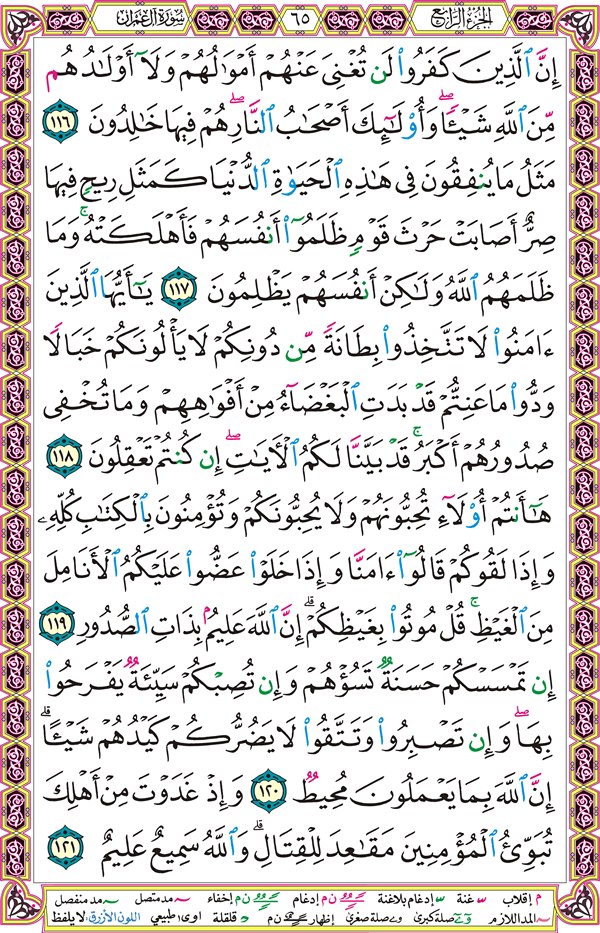 الجزء الرابع
٦٥
سورة آل عمران
إِنَّ ٱلَّذِينَ كَفَرُوا۟ لَن تُغْنِىَ عَنْهُمْ أَمْوَٰلُهُمْ وَلَآ أَوْلَـٰدُهُم
مِّنَ ٱللَّهِ شَيْـًٔا ۖ وَأُو۟لَـٰٓئِكَ أَصْحَـٰبُ ٱلنَّارِ ۖ هُمْ فِيهَا خَـٰلِدُونَ ١١٦
مَثَلُ مَا يُنفِقُونَ فِى هَـٰذِهِ ٱلْحَيَوٰةِ ٱلدُّنْيَا كَمَثَلِ رِيحٍ فِيهَا
صِرٌّ أَصَابَتْ حَرْثَ قَوْمٍ ظَلَمُوٓا۟ أَنفُسَهُمْ فَأَهْلَكَتْهُ ۚ وَمَا
ظَلَمَهُمُ ٱللَّهُ وَلَـٰكِنْ أَنفُسَهُمْ يَظْلِمُونَ ١١٧ يَـٰٓأَيُّهَا ٱلَّذِينَ
ءَامَنُوا۟ لَا تَتَّخِذُوا۟ بِطَانَةً مِّن دُونِكُمْ لَا يَأْلُونَكُمْ خَبَالًا
وَدُّوا۟ مَا عَنِتُّمْ قَدْ بَدَتِ ٱلْبَغْضَآءُ مِنْ أَفْوَٰهِهِمْ وَمَا تُخْفِى
صُدُورُهُمْ أَكْبَرُ ۚ قَدْ بَيَّنَّا لَكُمُ ٱلْـَٔايَـٰتِ ۖ إِن كُنتُمْ تَعْقِلُونَ ١١٨
هَـٰٓأَنتُمْ أُو۟لَآءِ تُحِبُّونَهُمْ وَلَا يُحِبُّونَكُمْ وَتُؤْمِنُونَ بِٱلْكِتَـٰبِ كُلِّهِۦ
وَإِذَا لَقُوكُمْ قَالُوٓا۟ ءَامَنَّا وَإِذَا خَلَوْا۟ عَضُّوا۟ عَلَيْكُمُ ٱلْأَنَامِلَ
مِنَ ٱلْغَيْظِ ۚ قُلْ مُوتُوا۟ بِغَيْظِكُمْ ۗ إِنَّ ٱللَّهَ عَلِيمٌۢ بِذَاتِ ٱلصُّدُورِ ١١٩
إِن تَمْسَسْكُمْ حَسَنَةٌ تَسُؤْهُمْ وَإِن تُصِبْكُمْ سَيِّئَةٌ يَفْرَحُوا۟
بِهَا ۖ وَإِن تَصْبِرُوا۟ وَتَتَّقُوا۟ لَا يَضُرُّكُمْ كَيْدُهُمْ شَيْـًٔا ۗ
إِنَّ ٱللَّهَ بِمَا يَعْمَلُونَ مُحِيطٌ ١٢٠ وَإِذْ غَدَوْتَ مِنْ أَهْلِكَ
تُبَوِّئُ ٱلْمُؤْمِنِينَ مَقَـٰعِدَ لِلْقِتَالِ ۗ وَٱللَّهُ سَمِيعٌ عَلِيمٌ ١٢١
م إقلاب س غنة س إدغام بلاغنة ن م إدغام ن م إخفاء مد متصل مد منفصل
المد اللازم صلة كبرى صلة صغرى إظهار ن م قلقلة اوى: طبيعي اللون الأزرق: لا يلفظ